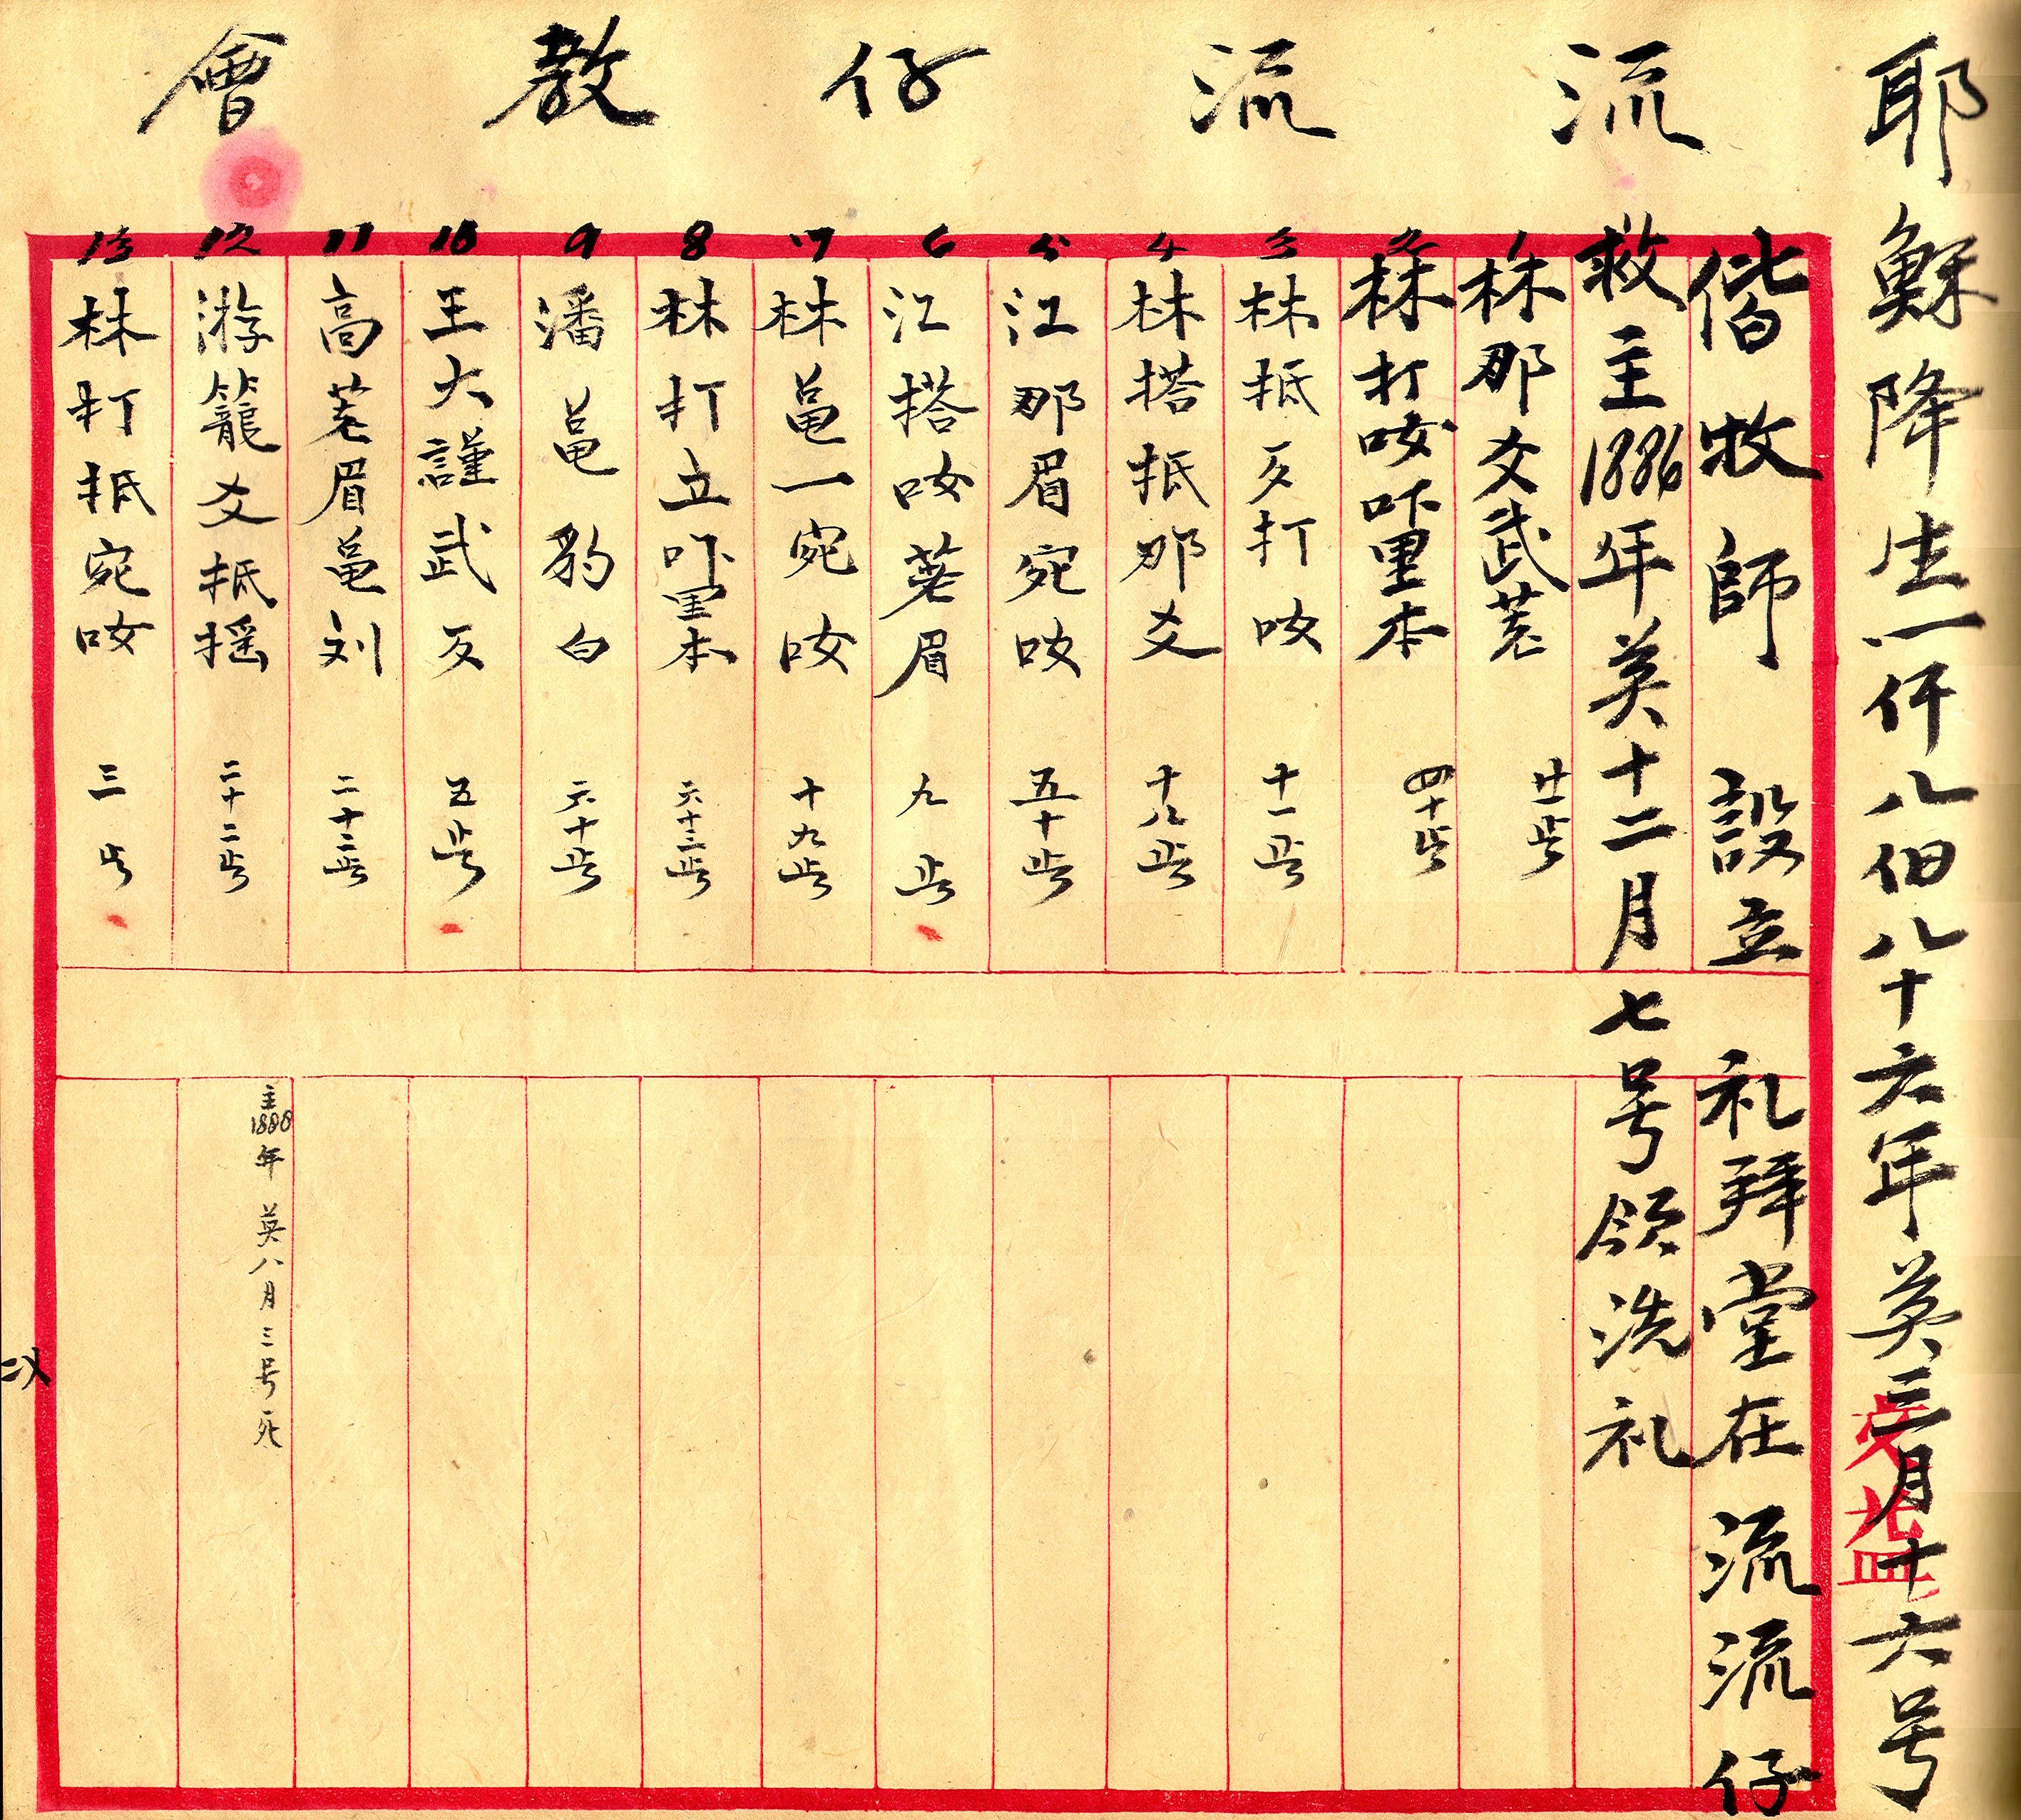 流流仔教會
耶穌降生一仟八佰八十六年英三月十六号
偕牧師設立礼拜堂在流流仔
救主1886年英十二月七号領洗礼
1 林那爻武荖 廿一歲
2 林打㕭吥里本 四十歲
3 林抵歹打㕭 十一歲
4 林搭抵那爻 十八歲
5 江那眉宛㕭 五十歲
6 江搭㕭荖眉 九歲
7 林黽一宛㕭 十九歲
8 林打立吥里本 六十三歲
9 潘黽豹白 六十歲
10 王大謹武歹 五歲
11 高荖眉黽刘 二十三歲
12 游籠爻抵摇 二十二歲
主1888年英八月三号死
13 林打抵宛㕭 三歲